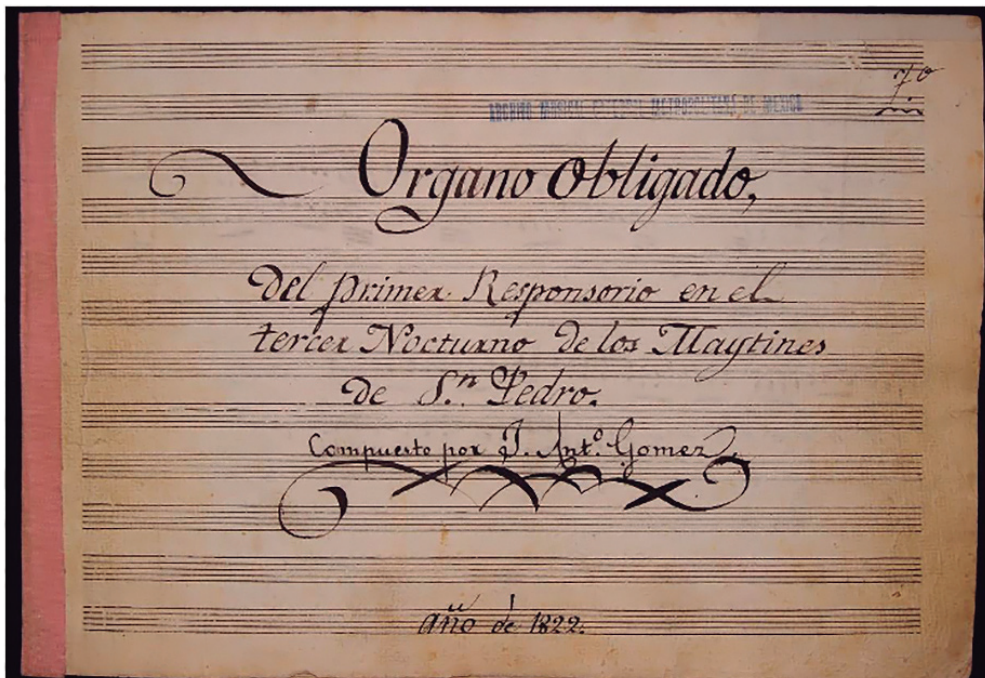 7º
ARCHIVO MUSICAL CATEDRAL METROPOLITANA DE MEXICO
Organo Obligado,
Del primer Responsorio en el
tercer Nocturno de los Maytines
de S.n Pedro.
Compuesto por J. Ant.º Gomez.
año de 1822.